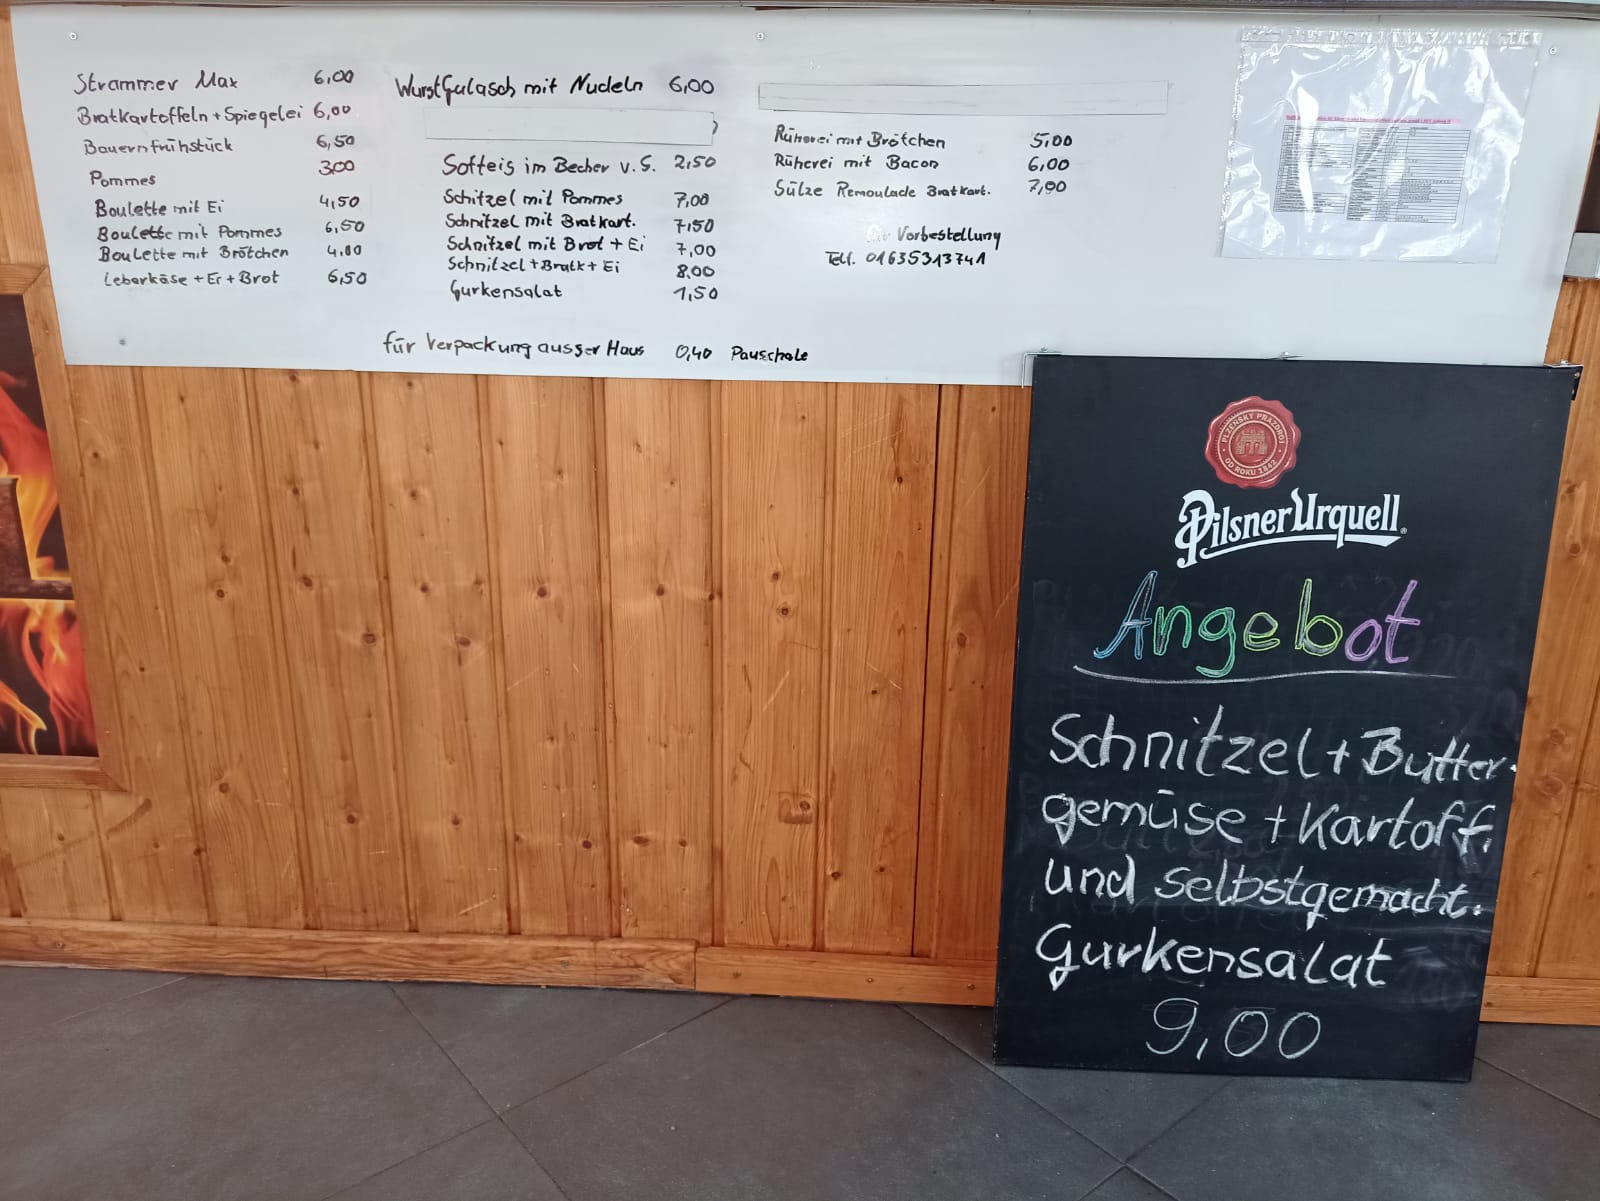 Strammer Max 6,00
Bratkartoffeln + Spiegelei 6,00
Bauernfrühstück 6,50
Pommes 3,00
Boulette mit Ei 4,50
Boulette mit Pommes 6,50
Boulette mit Brötchen 4,00
Leberkäse + Ei + Brot 6,50
WurstGulasch mit Nudeln 6,00
Softeis im Becher v. S. 2,50
Schitzel mit Pommes 7,00
Schnitzel mit Bratkart. 7,50
Schnitzel mit Brot + Ei 7,00
Schnitzel + Bratk + Ei 8,00
Gurkensalat 1,50
Rüherei mit Brötchen 5,00
Rüherei mit Bacon 6,00
Sülze Remoulade Bratkart. 7,00
Vorbestellung
Tell. 01635313741
für Verpackung ausser Haus 0,40 Pauschale
PLZEŇSKÝ PRAZDROJ
OD ROKU 1842
Pilsner Urquell
Angebot
Schnitzel + Butter-
gemüse + Kartoff.
und selbstgemacht.
Gurkensalat
9,00